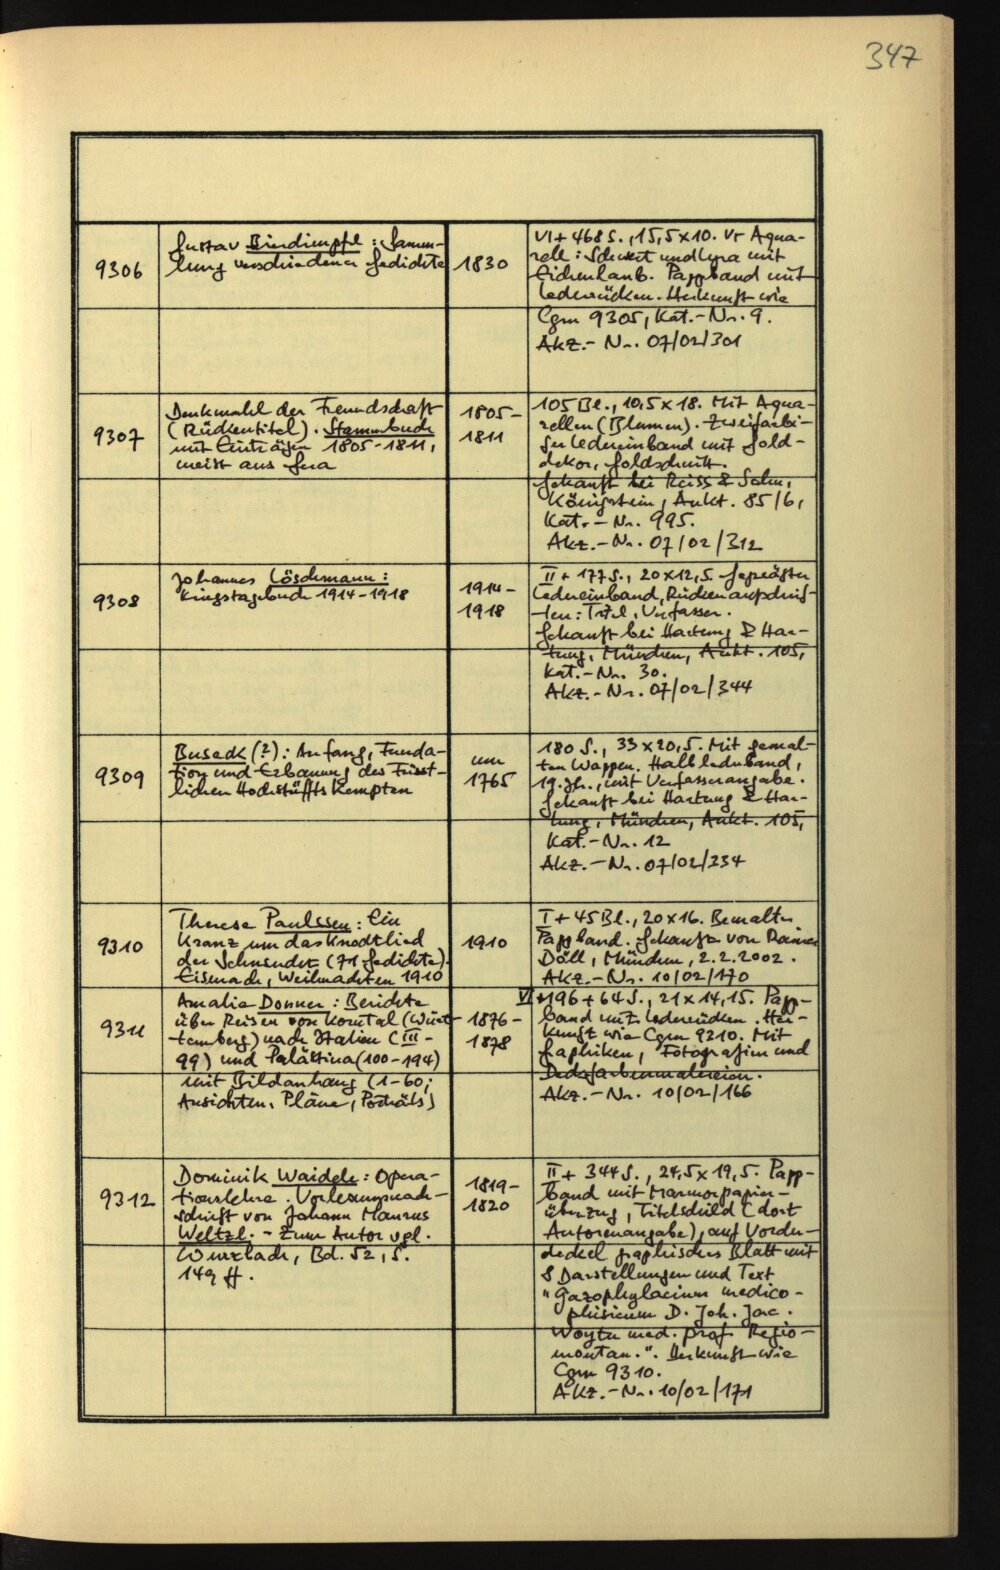 347
9306
Gustav Bindimpfl: Samm-
lung verschiedener Gedichte
1830
VI + 468 S., 15,5 x 10. Vr Aqua-
rell: Schwert und Lyra mit
Eichenlaub. Pappband mit
Lederrücken. Herkunft wie
Cgm 9305, Kat.-Nr. 9.
Akz.-Nr. 07/02/301
9307
Denkmahl der Freundschaft
(Rückentitel). Stammbuch
mit Einträgen 1805-1811,
meist aus Gera
1805-
1811
105 Bl., 10,5 x 18. Mit Aqua-
rellen (Blumen). Zweifarbi-
ger Ledereinband mit Gold-
dekor, Goldschnitt.
Gekauft bei Reiss & Sohn,
Königstein, Aukt. 85/6,
Kat.-Nr. 995.
Akz.-Nr. 07/02/312
9308
Johannes Löschmann:
Kriegstagebuch 1914-1918
1914-
1918
II + 177 S., 20 x 12,5. Geprägter
Ledereinband, Rückenaufschrif-
ten: Titel, Verfasser.
Gekauft bei Hartung & Har-
tung, München, Aukt. 105,
Kat.-Nr. 30.
Akz.-Nr. 07/02/344
9309
Buseck (?): Anfang, Funda-
tion und Erbauung des Fürst-
lichen Hochstüffts Kempten
um
1765
180 S., 33 x 20,5. Mit gemal-
ten Wappen. Halblederband,
19. Jh., mit Verfasserangabe.
Gekauft bei Hartung & Har-
tung, München, Aukt. 105,
Kat.-Nr. 12
Akz.-Nr. 07/02/234
9310
Therese Paulssen: Ein
Kranz um das Knodtlied
der Sehnsucht (71 Gedichte).
Eisenach, Weihnachten 1910
1910
I + 45 Bl., 20 x 16. Bemalter
Pappband. Gekauft von Rainer
Döll, München, 2.2.2002.
Akz.-Nr. 10/02/170
9311
Amalie Donner: Berichte
über Reisen von Korntal (Würt-
temberg) nach Italien (III-
99) und Palästina (100-194)
mit Bildanhang (1-60;
Ansichten, Pläne, Porträts)
1876-
1878
VI + 196 + 64 S., 21 x 14,15. Papp-
band mit Lederrücken. Her-
kunft wie Cgm 9210. Mit
Graphiken, Fotografien und
Deckfarbenmalereien.
Akz.-Nr. 10/02/166
9312
Dominik Waidele: Opera-
tionslehre. Vorlesungsnach-
schrift von Johann Maurus
Weltzl. - Zum Autor vgl.
Wurzbach, Bd. 52, S.
149 ff.
1819-
1820
II + 344 S., 24,5 x 19,5. Papp-
band mit Marmorpapier-
überzug, Titelschild (dort
Autorenangabe), auf Vorder-
deckel graphisches Blatt mit
8 Darstellungen und Text
"Gazophylacium medico-
phisicum D. Joh. Jac.
Woytu med. prof. Regio-
montan.". Herkunft wie
Cgm 9310.
Akz.-Nr. 10/02/171